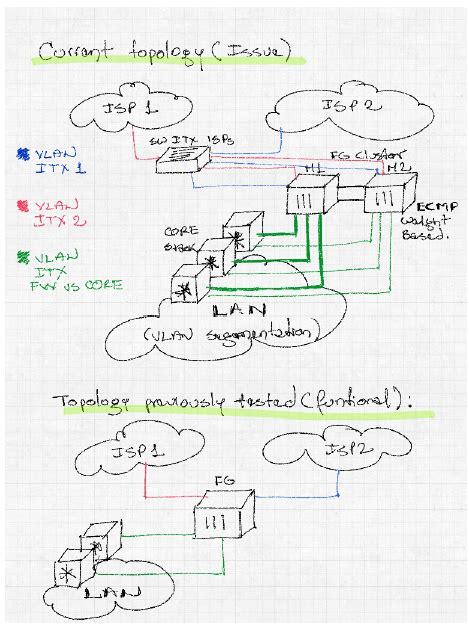 Current topology (Issue)
ISP 1
ISP 2
SW ITX ISPs
FG Cluster
M1
M2
VLAN
ITX 1
VLAN
ITX 2
VLAN
ITX
FW vs CORE
ECMP
Weight
Based.
CORE
Stack
LAN
(VLAN segmentation)
Topology previously tested (funtional):
ISP1
ISP2
FG
LAN